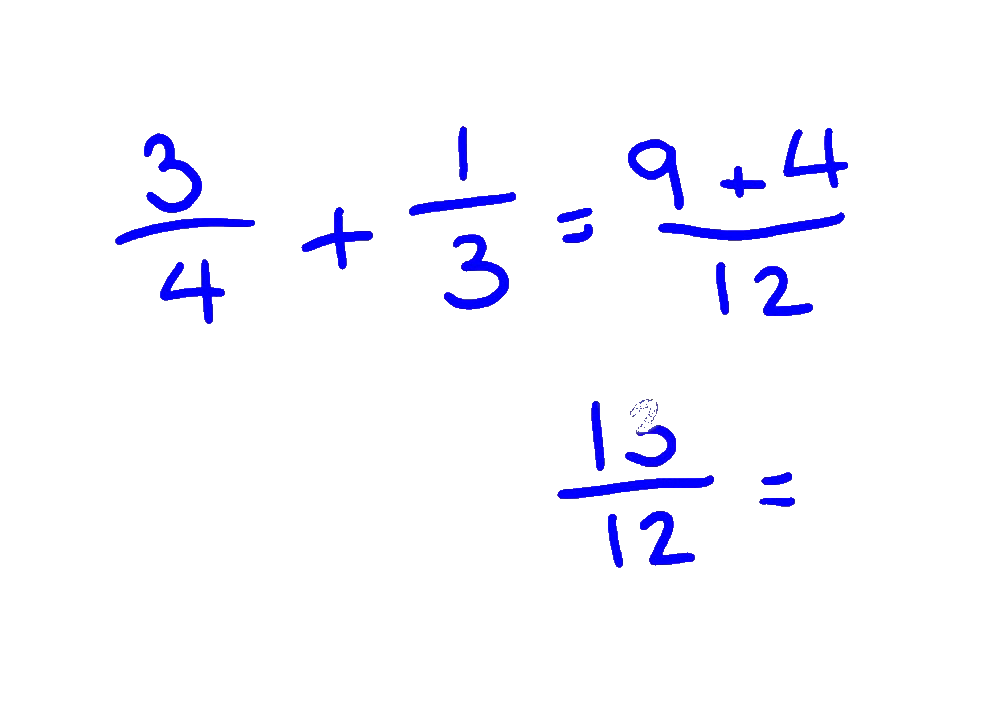 3/4 + 1/3 = (9 + 4)/12
13/12 =